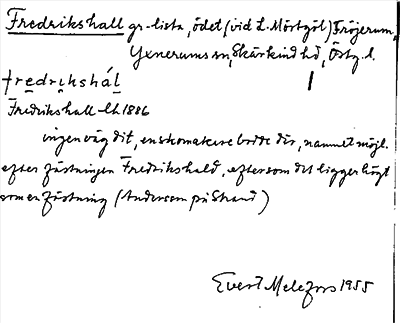 Fredrikshall gr-lista, ödet (vid L. Mörtgöl) Fröjerum,
Yxnerums sn, Skärkind hd, Östg. l.
fredrikshál
Fredrikshall LL 1886
ingen väg dit, en skomakare bodde där, namnet möjl.
efter fästningen Fredrikshald, eftersom det ligger högt
som en fästning (Andersson på Strand)
Evert Melefors 1955